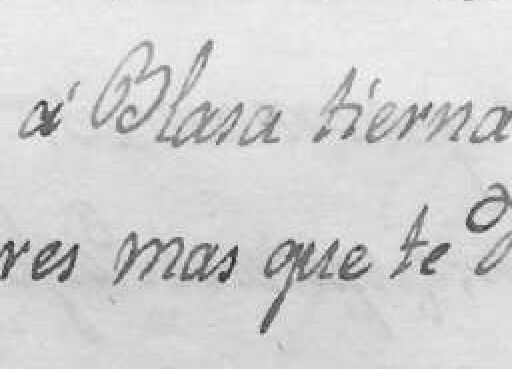 á Blasa tierna
res mas que te